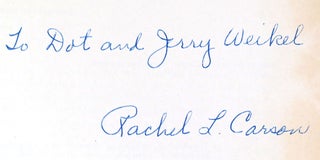 To Dot and Jerry Weikel
Rachel L. Carson